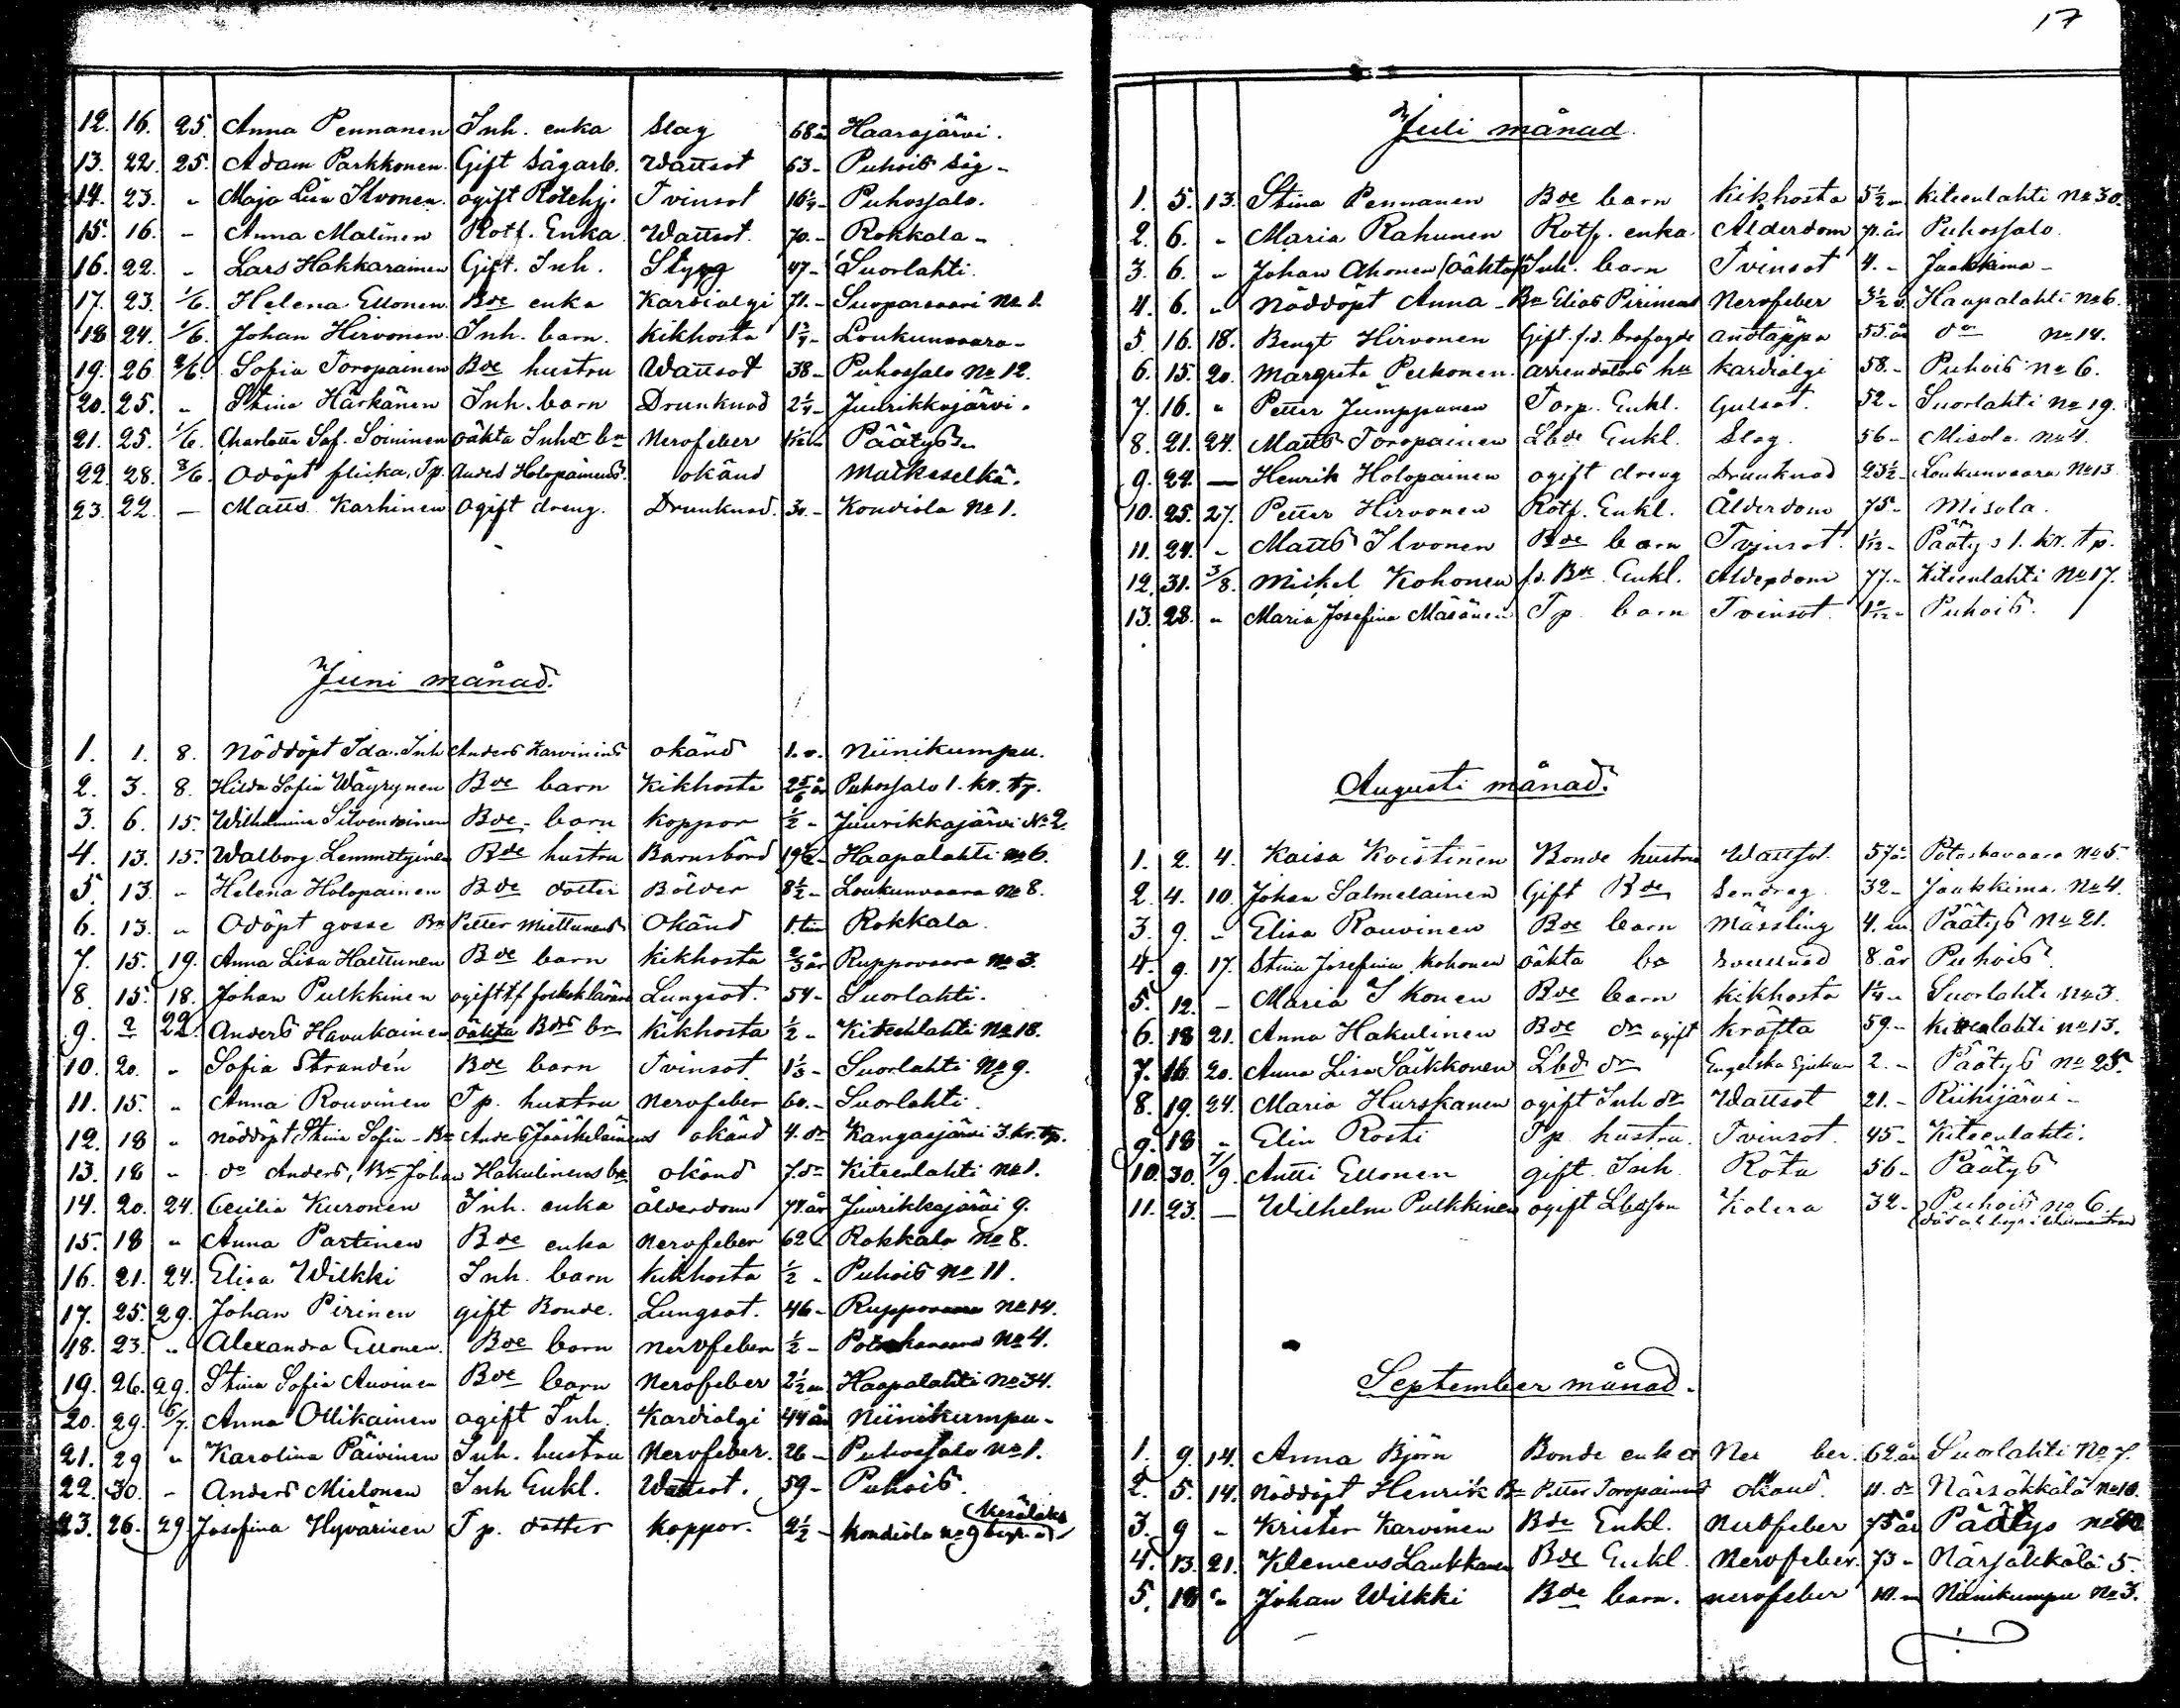 12. 16. 25. Anna Pennanen Inh. enka Slag 68 år Haarajärvi.
13. 22. 25. Adam Parkkonen. Gift Sågarb. Wattsot 63 - Puhois såg -
14. 23. " Maja Lisa Ilvonen. ogift Rotehj. Tvinsot 16 1/4 - Puhossalo.
15. 16. - Anna Malinen Rotf. Enka Wattsot 70. - Rokkala -
16. 22. " Lars Hakkarainen Gift. Inh. Stygg 47 - Suorlahti.
17. 23. 1/6. Helena Ellonen Bde enka Kardialgi 71. - Suoparsaari No 1.
18 24. 1/6. Johan Hirvonen. Inh. barn. Kikhosta 1 3/4 - Loukunvaara -
19. 26 2/6. Sofia Toropainen Bde hustru Wattsot 38 - Puhossalo No 12.
20. 25. " Stina Härkänen Inh. barn Drunknad 2 1/4 - Juurikkajärvi.
21. 25. 1/6. Charlotta Sof. Soininen oäkta Inhs bn Nervfeber Päätys.
22. 28. 3/6. Odöpt flicka, Tp. Anders Holopainens okänd Matkaselkä.
23. 22. - Matts Karhinen ogift dreng. Drunknad. 30. - Kondiola No 1.
Juni månad.
1. 1. 8. Nöddöpt Ida. Inh Anders Karvinens okänd 1. v. Niinikumpu.
2. 3. 8. Hilda Sofia Wäyrynen Bde barn Kikhosta 2 5/6 år Puhossalo 1. kr. tp.
3. 6. 15. Wilhelmina Silvennoinen Bde. barn Koppor 1/2 - Juurikkajärvi No 2.
4. 13. 15. Walborg Lemmetyinen Bde hustru Barnsbörd Haapalahti No 6.
5. 13. " Helena Holopainen Bde dotter Bölder 8 1/2 - Loukunvaara No 8.
6. 13. " Odöpt gosse Bn Petter Miettunens Okänd 1. tim Rokkala.
7. 15. 19. Anna Lisa Hattunen Bde barn Kikhosta 2/3 år Ruppovaara No 3.
8. 15. 18. Johan Pulkkinen ogift Lungsot. 54 - Suorlahti.
9. ? 22. Anders Havukainen oäkta Bds bn Kikhosta 1/2 - Kiteenlahti No 18.
10. 20. " Sofia Strandén Bde barn Tvinsot 1 1/3 - Suorlahti No 9.
11. 15. " Anna Rouvinen Tp. hustru Nervfeber 60. - Suorlahti.
12. 18 " Nöddöpt Stina Sofia - Bn Anders Jääskeläinens okänd 4. dr Kangasjärvi 3. kr. tp.
13. 18 " do Anders, Bn Johan Hakulinens bn okänd 7. dr Kiteenlahti No 1.
14. 20. 24. Cecilia Kuronen Inh. enka ålderdom 77. år Juurikkajärvi 9.
15. 18 " Anna Partinen Bde enka Nervfeber 62 - Rokkala No 8.
16. 21. 24. Elisa Wilkki Inh. barn Kikhosta 1/2 - Puhois No 11.
17. 25. 29. Johan Pirinen gift Bonde. Lungsot. 46 - Ruppovaara No 14.
18. 23. " Alexandra Ellonen. Bde barn nervfeber 1/2 - Potoskavaara No 4.
19. 26. 29. Stina Sofia Auvinen Bde barn Nervfeber 2 1/2 m Haapalahti No 34.
20. 29. 6/7. Anna Ollikainen ogift Inh. Kardialgi 44 år Niinikumpu -
21. 29 " Karolina Päivinen Inh. hustru Nervfeber. 26 - Puhossalo No 1.
22. 30. - Anders Mielonen Inh Enkl. Wattsot. 59 - Puhois.
23. 26. 29 Josefina Hyvärinen Tp. dotter Koppor. 2 1/2 - Kondiola No 9 begr. i Kesälaks
17
Juli månad.
1. 5. 13. Stina Pennanen Bde barn Kikhosta 5 1/2 m Kiteenlahti No 30.
2. 6. " Maria Rahunen Rotf. enka Ålderdom 71. år Puhossalo.
3. 6. " Johan Ahonen (oäkta) Inh. barn Tvinsot 4. - Jaakkima -
4. 6. " Nöddöpt Anna - Bn Elias Pirinens Nervfeber 3 1/2 Haapalahti No 6.
5. 16. 18. Bengt Hirvonen Gift. f.d. brofogde andtäppa 55 år do No 14.
6. 15. 20. Margreta Pelkonen. arrendators hu Kardialgi 58. - Puhois No 6.
7. 16. " Petter Jumppanen Torp. Enkl. Gulsot. 52 - Suorlahti No 19.
8. 21. 24. Matts Toropainen Lbde Enkl. Slag. 56 - Misola No 4.
9. 22. — Henrik Holopainen ogift dreng Drunknad 23 1/2 - Loukunvaara No 13
10. 25. 27. Petter Hirvonen Rotf. Enkl. Ålderdom 75 - Misola.
11. 24. - Matts Ilvonen Bde barn Tvinsot. 1 1/12 - Päätys 1. kr. tp.
12. 31. 3/8. Mickel Kohonen f.d. Bde Enkl. Ålderdom 77. - Kiteenlahti No 17.
13. 28. " Maria Josefina Mäsänen Tp. barn Tvinsot. Puhois.
Augusti månad.
1. 2. 4. Kaisa Koistinen Bonde hustru Wattsot. 57 år Potoskavaara No 5.
2. 4. 10. Johan Salmelainen Gift Bde Sendrag. 32 - Jaakkima. No 4.
3. 9. " Elisa Rouvinen Bde barn Mässling 4. m Päätys No 21.
4. 9. 17. Stina Josefina Kohonen oäkta bn 8. år Puhois.
5. 12. - Maria Ikonen Bde barn Kikhosta 1 1/4 - Suorlahti No 3.
6. 18 21. Anna Hakulinen Bde dr ogift Kräfta 59. - Kiteenlahti No 13.
7. 16. 20. Anna Lisa Säkkonen Lbd. dr Engelska Sjukan 2. - Päätys No 25.
8. 19. 24. Maria Hurskanen ogift Inh dr Wattsot 21. - Riihijärvi -
9. 18 " Elin Rosti Tp. hustru. Tvinsot. 45 - Kiteenlahti.
10. 30. 7/9. Antti Ellonen gift. Inh. Röta 56 - Päätys
11. 23. — Wilhelm Pulkkinen ogift Lbdson Kolera 32 - Puhois No 6.
död och begr. i
September månad.
1. 9. 14. Anna Björn Bonde enka Ner ber. 62. år Suorlahti No 7.
2. 5. 14. Nöddöpt Henrik Bn Petter Toropainens okänd. 11. dr Närsäkkälä No 10.
3. 9 " Krister Karvinen Bde Enkl. Nervfeber 75 år Päätys
4. 13. 21. Klemens Laukkanen Bde Enkl. Nervfeber. 73 - Närsäkkälä 5.
5. 18 " Johan Wilkki Bde barn. nervfeber 10. m Niinikumpu No 3.